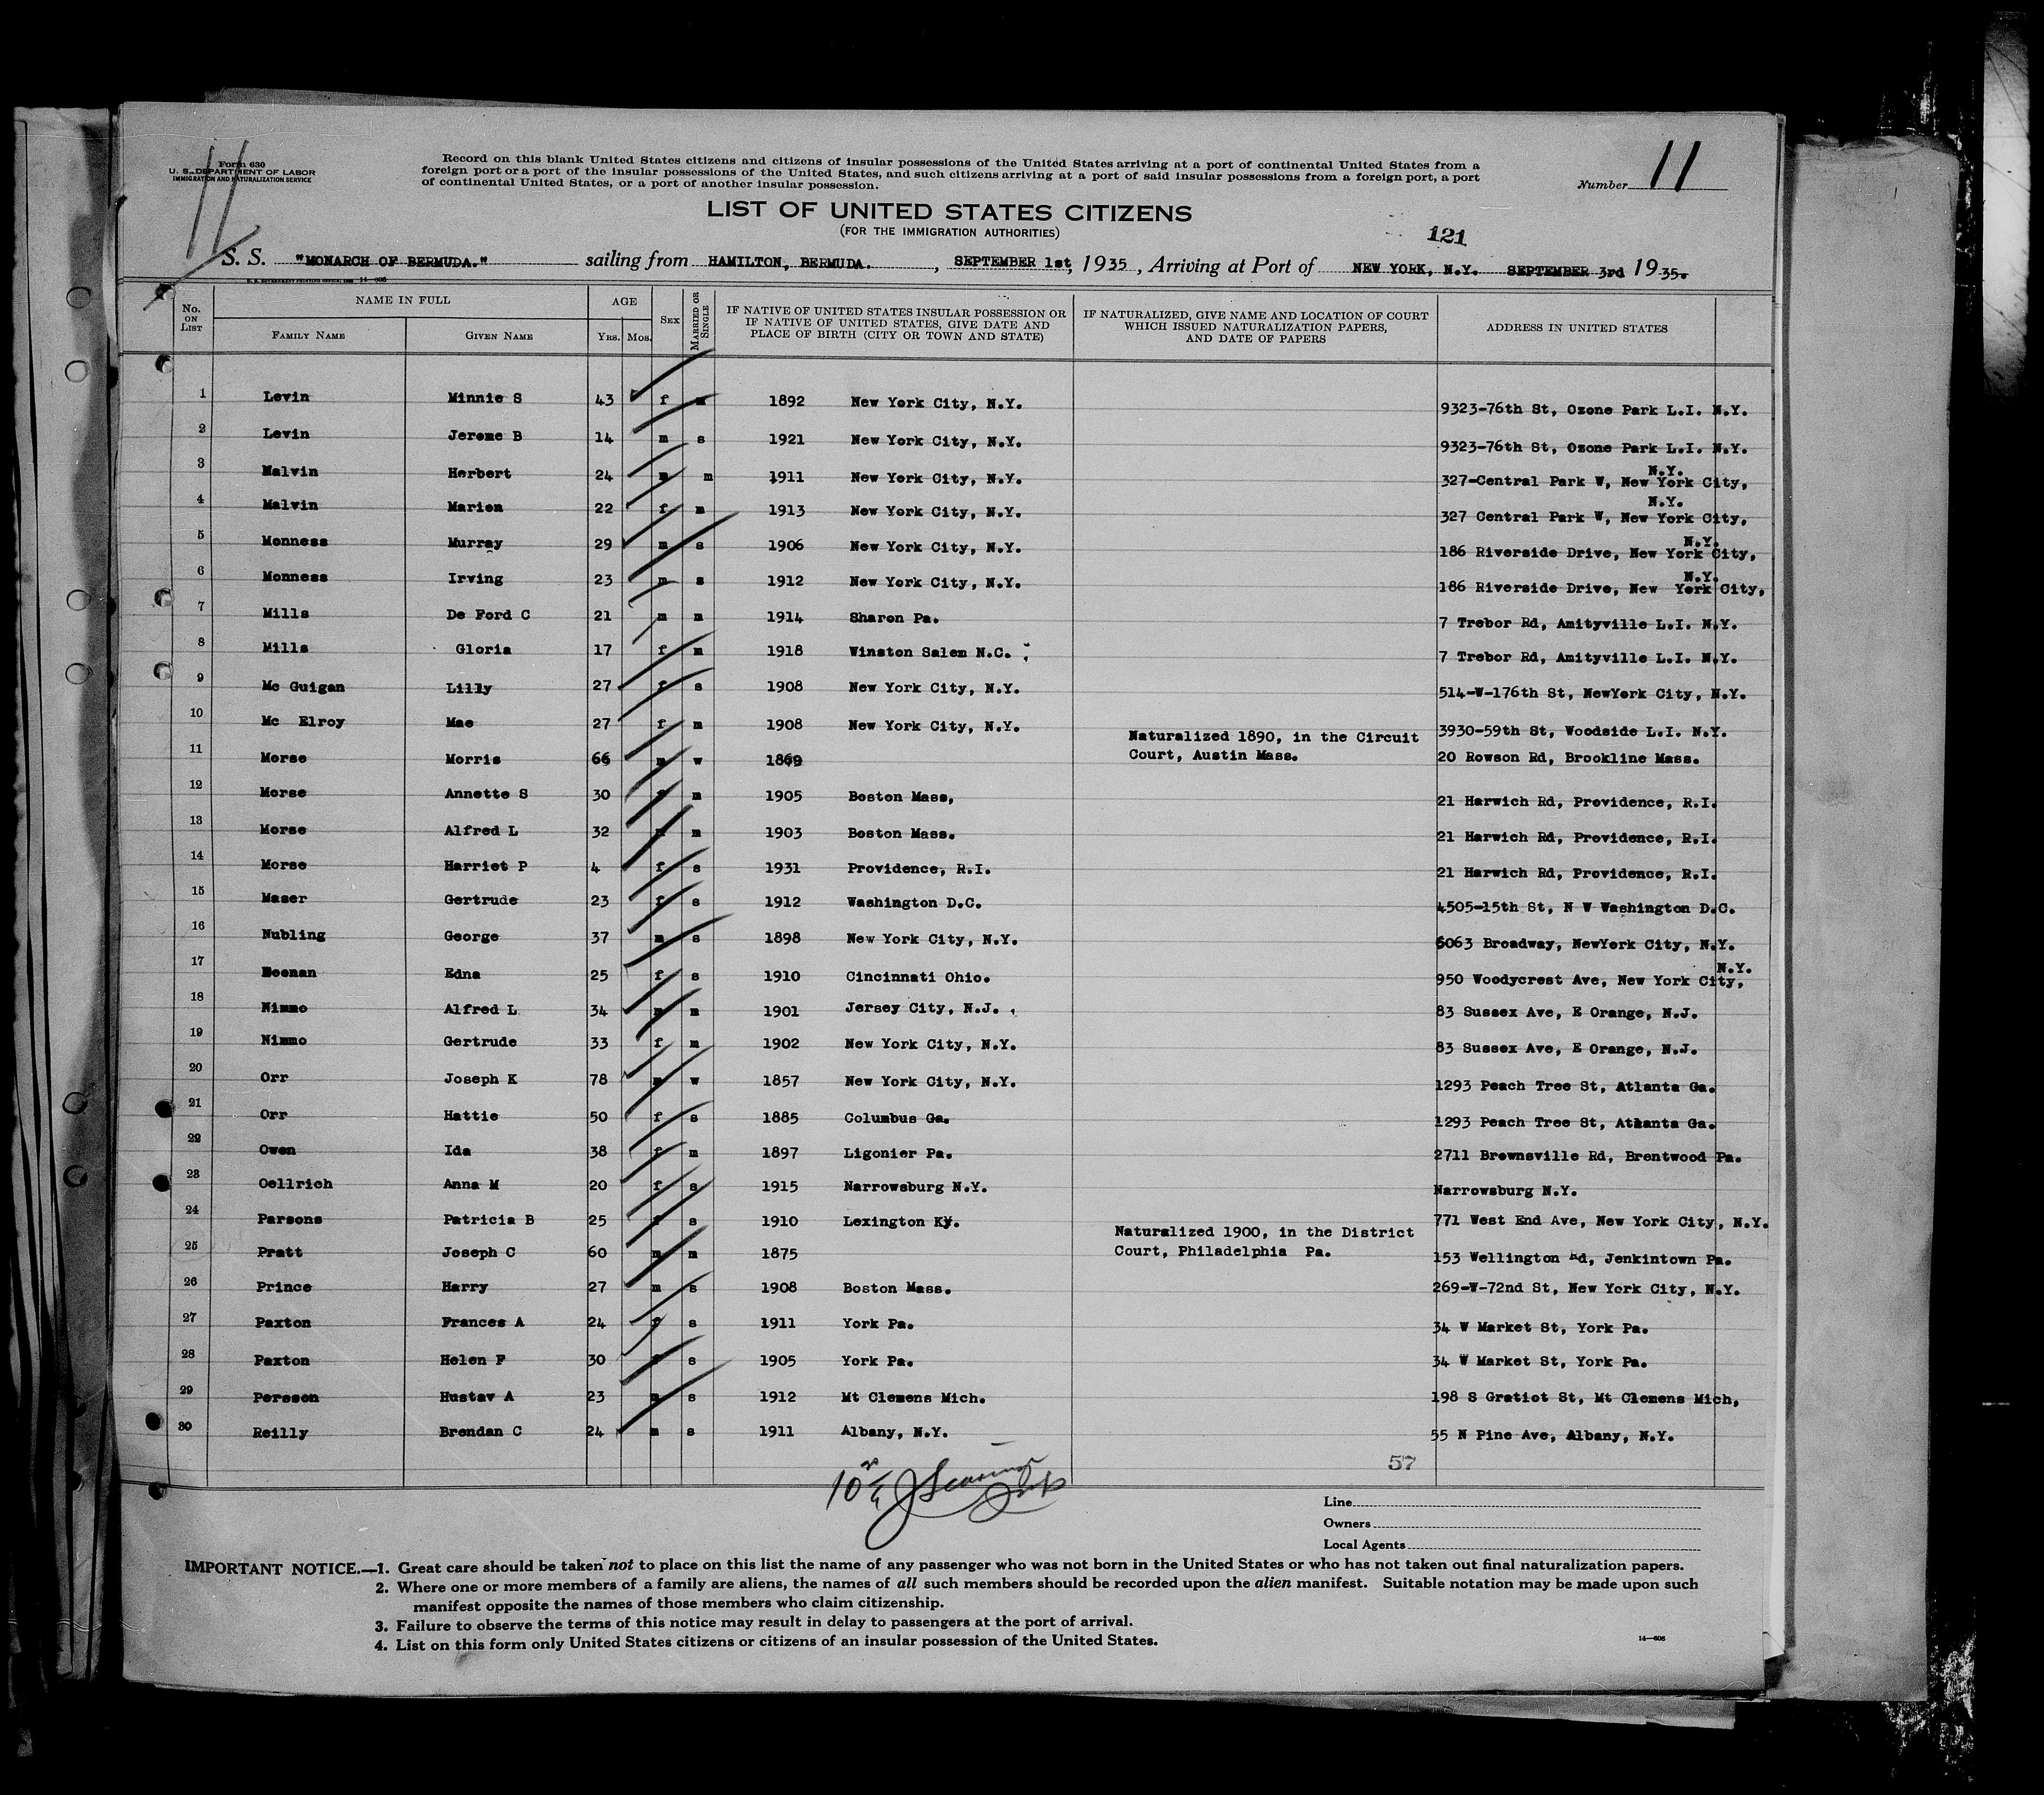 Form 630
U. S. DEPARTMENT OF LABOR
IMMIGRATION AND NATURALIZATION SERVICE
11
Record on this blank United States citizens and citizens of insular possessions of the United States arriving at a port of continental United States from a
foreign port or a port of the insular possessions of the United States, and such citizens arriving at a port of said insular possessions from a foreign port, a port
of continental United States, or a port of another insular possession.
Number 11
LIST OF UNITED STATES CITIZENS
(FOR THE IMMIGRATION AUTHORITIES)
121
S. S. "MONARCH OF BERMUDA." sailing from HAMILTON, BERMUDA. , SEPTEMBER 1st, 1935, Arriving at Port of NEW YORK, N.Y. SEPTEMBER 3rd 1935.
U. S. GOVERNMENT PRINTING OFFICE 14-606
No. ON LIST NAME IN FULL AGE SEX MARRIED OR SINGLE IF NATIVE OF UNITED STATES INSULAR POSSESSION OR IF NATIVE OF UNITED STATES, GIVE DATE AND PLACE OF BIRTH (CITY OR TOWN AND STATE) IF NATURALIZED, GIVE NAME AND LOCATION OF COURT WHICH ISSUED NATURALIZATION PAPERS, AND DATE OF PAPERS ADDRESS IN UNITED STATES
FAMILY NAME GIVEN NAME YRS. MOS.
1 Levin Minnie S 43 f m 1892 New York City, N.Y. 9323-76th St, Ozone Park L.I. N.Y.
2 Levin Jerome B 14 m s 1921 New York City, N.Y. 9323-76th St, Ozone Park L.I. N.Y.
3 Malvin Herbert 24 m m 1911 New York City, N.Y. 327-Central Park W, New York City, N.Y.
4 Malvin Marion 22 f m 1913 New York City, N.Y. 327 Central Park W, New York City, N.Y.
5 Monness Murray 29 m s 1906 New York City, N.Y. 186 Riverside Drive, New York City, N.Y.
6 Monness Irving 23 m s 1912 New York City, N.Y. 186 Riverside Drive, New York City, N.Y.
7 Mills De Ford C 21 m m 1914 Sharon Pa. 7 Trebor Rd, Amityville L.I. N.Y.
8 Mills Gloria 17 f m 1918 Winston Salem N.C. 7 Trebor Rd, Amityville L.I. N.Y.
9 Mc Guigan Lilly 27 f s 1908 New York City, N.Y. 514-W-176th St, NewYork City, N.Y.
10 Mc Elroy Mae 27 f m 1908 New York City, N.Y. 3930-59th St, Woodside L.I. N.Y.
11 Morse Morris 66 m w 1869 Naturalized 1890, in the Circuit Court, Austin Mass. 20 Rowson Rd, Brookline Mass.
12 Morse Annette S 30 f m 1905 Boston Mass, 21 Harwich Rd, Providence, R.I.
13 Morse Alfred L 32 m m 1903 Boston Mass. 21 Harwich Rd, Providence, R.I.
14 Morse Harriet P 4 f s 1931 Providence, R.I. 21 Harwich Rd, Providence, R.I.
15 Maser Gertrude 23 f s 1912 Washington D.C. 4505-15th St, N W Washington D.C.
16 Nubling George 37 m s 1898 New York City, N.Y. 6063 Broadway, NewYork City, N.Y.
17 Noonan Edna 25 f s 1910 Cincinnati Ohio. 950 Woodycrest Ave, New York City, N.Y.
18 Nimmo Alfred L 34 m m 1901 Jersey City, N.J. 83 Sussex Ave, E Orange, N.J.
19 Nimmo Gertrude 33 f m 1902 New York City, N.Y. 83 Sussex Ave, E Orange, N.J.
20 Orr Joseph K 78 m w 1857 New York City, N.Y. 1293 Peach Tree St, Atlanta Ga.
21 Orr Hattie 50 f s 1885 Columbus Ga. 1293 Peach Tree St, Atlanta Ga.
22 Owen Ida 38 f m 1897 Ligonier Pa. 2711 Brownsville Rd, Brentwood Pa.
23 Oellrich Anna M 20 f s 1915 Narrowsburg N.Y. Narrowsburg N.Y.
24 Parsons Patricia B 25 f s 1910 Lexington Ky. 771 West End Ave, New York City, N.Y.
25 Pratt Joseph C 60 m m 1875 Naturalized 1900, in the District Court, Philadelphia Pa. 153 Wellington Rd, Jenkintown Pa.
26 Prince Harry 27 m s 1908 Boston Mass. 269-W-72nd St, New York City, N.Y.
27 Paxton Frances A 24 f s 1911 York Pa. 34 W Market St, York Pa.
28 Paxton Helen F 30 f s 1905 York Pa. 34 W Market St, York Pa.
29 Persson Hustav A 23 m s 1912 Mt Clemens Mich. 198 S Gratiot St, Mt Clemens Mich,
30 Reilly Brendan C 24 m s 1911 Albany, N.Y. 55 N Pine Ave, Albany, N.Y.
57
Line
Owners
Local Agents
IMPORTANT NOTICE.—1. Great care should be taken not to place on this list the name of any passenger who was not born in the United States or who has not taken out final naturalization papers.
2. Where one or more members of a family are aliens, the names of all such members should be recorded upon the alien manifest. Suitable notation may be made upon such
manifest opposite the names of those members who claim citizenship.
3. Failure to observe the terms of this notice may result in delay to passengers at the port of arrival.
4. List on this form only United States citizens or citizens of an insular possession of the United States.
14-606